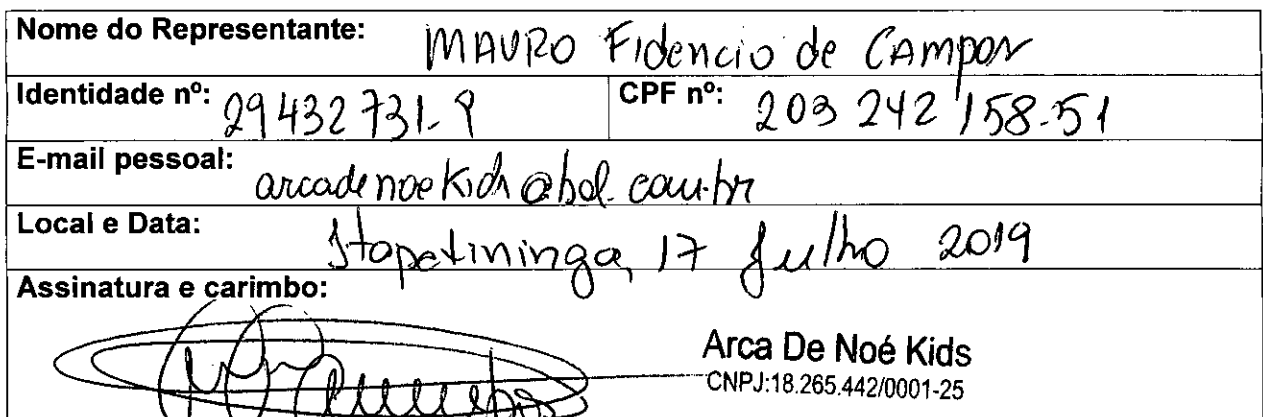 Nome do Representante: MAURO Fidencio de CAMPOS
Identidade nº: 29432731-9 CPF nº: 203 242 158-51
E-mail pessoal: arcadenoekids@bol.com.br
Local e Data: Itapetininga, 17 Julho 2019
Assinatura e carimbo:
Arca De Noé Kids
CNPJ:18.265.442/0001-25